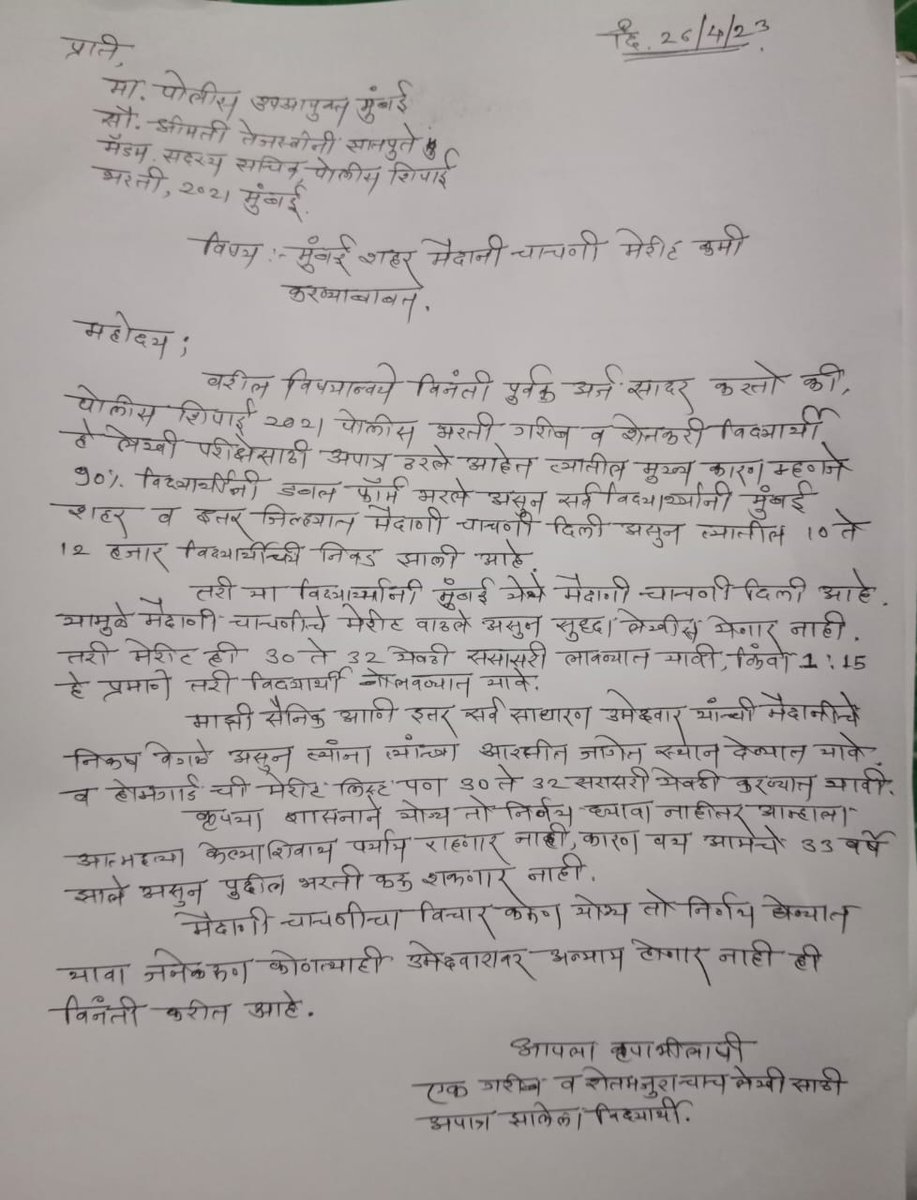 दि. २६/४/२३
प्रति,
मा. पोलीस उपआयुक्त मुंबई
सौ. श्रीमती तेजस्वीनी सातपुते
मॅडम. सदस्य सचिव, पोलीस शिपाई
भरती, २०२१ मुंबई.
विषय :- मुंबई शहर मैदानी चाचणी मेरीट कमी
करण्याबाबत.
महोदय ;
वरील विषयान्वये विनंती पुर्वक अर्ज सादर करतो की,
पोलीस शिपाई २०२१ पोलीस भरती गरीब व शेतकरी विद्यार्थी
हे लेखी परीक्षेसाठी अपात्र ठरले आहेत त्यातील मुख्य कारण म्हणजे
९०% विद्यार्थीनी डबल फॉर्म भरले असुन सर्व विद्यार्थ्यांनी मुंबई
शहर व इतर जिल्ह्यात मैदाणी चाचणी दिली असुन त्यातील १० ते
१२ हजार विद्यार्थीची निवड झाली आहे.
तरी या विद्यार्थ्यांनी मुंबई येथे मैदाणी चाचणी दिली आहे.
यामुळे मैदाणी चाचणीचे मेरीट वाढले असुन सुद्धा लेखीस येणार नाही.
तरी मेरीट ही ३० ते ३२ येवढी ससासरी लावण्यात यावी, किंवा 1:15
हे प्रमाणे तरी विद्यार्थी बोलवण्यात यावे.
माझी सैनिक आणि इतर सर्व साधारण उमेदवार यांची मैदानीचे
निकष वेगळे असुन त्यांना त्यांच्या आरक्षीत जागेत स्थान देण्यात यावे.
व होमगार्ड ची मेरीट लिस्ट पण ३० ते ३२ सरासरी येवढी करण्यात यावी.
कृपया शासनाने योग्य तो निर्णय घ्यावा नाहीतर आम्हाला
आत्महत्या केल्याशिवाय पर्याय राहणार नाही, कारण वय आमचे ३३ वर्षे
झाले असुन पुढील भरती करू शकणार नाही.
मैदाणी चाचणीचा विचार करून योग्य तो निर्णय घेण्यात
यावा जेनेकरून कोणत्याही उमेदवारावर अन्याय होणार नाही ही
विनंती करीत आहे.
आपला कृपाभीलाषी
एक गरीब व शेतमजुराचाच लेखी साठी
अपात्र झालेला विद्यार्थी.